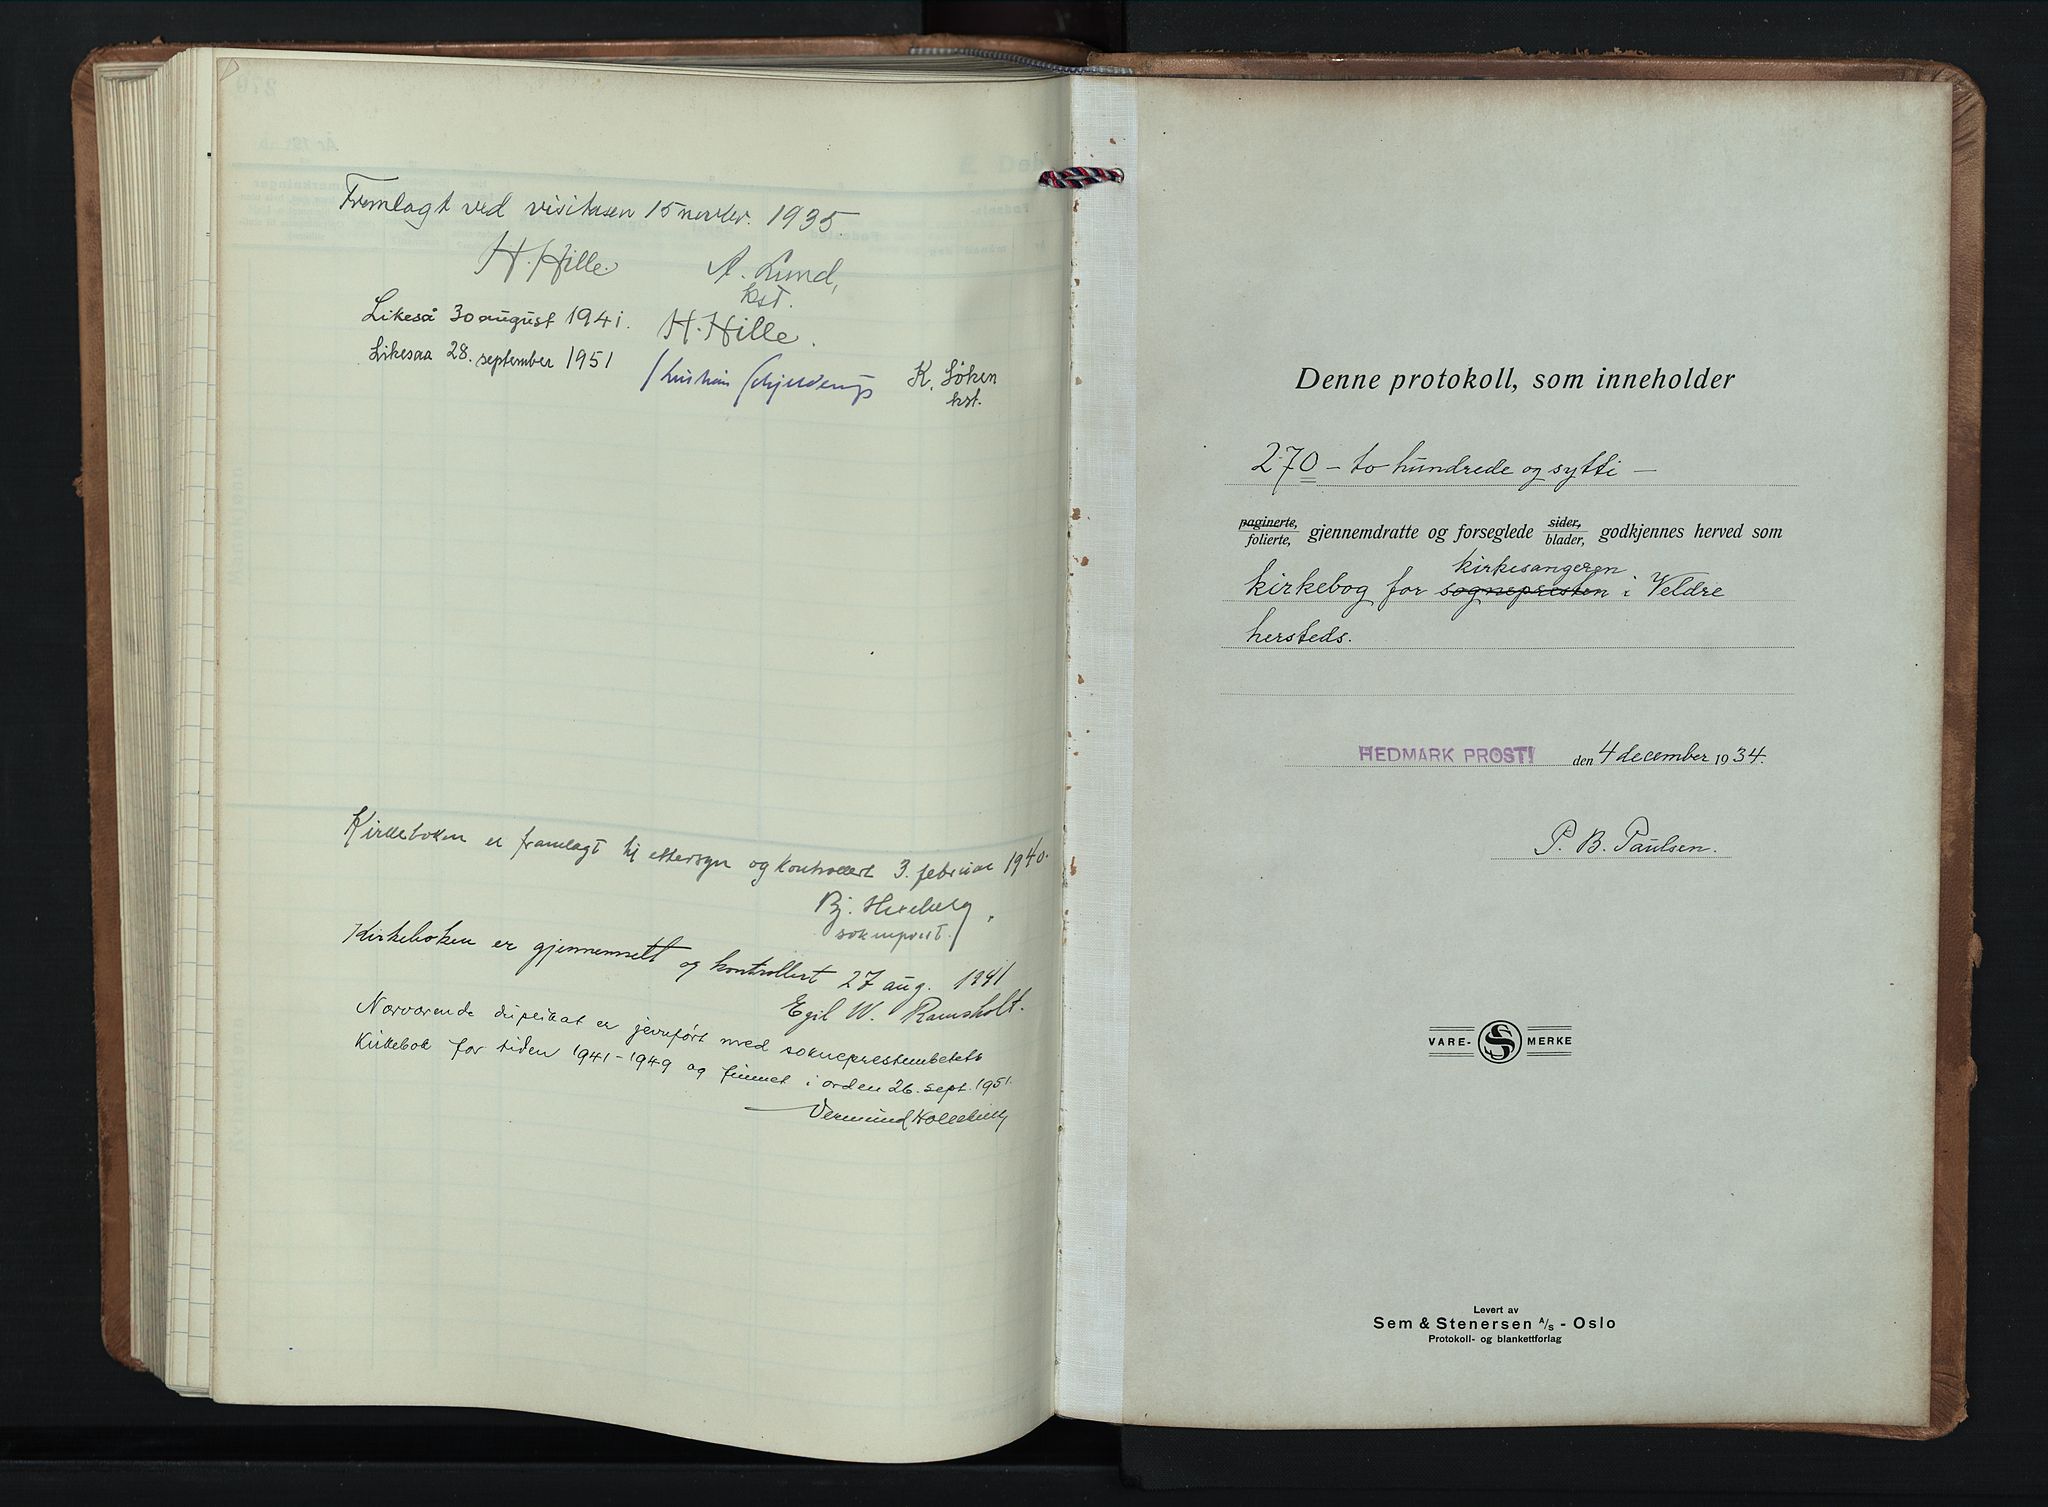 Fremlagt ved visitasen 15 novber. 1935
H. Hille. A. Lund,
kst.
Likeså 30 august 1941. H. Hille.
Likesaa 28. september 1951 Kristian Schjelderup K. Löken
kst.
Kirkeboken er framlagt til ettersyn og kontrollert 3. februar 1940.
Bj.
sokneprest.
Kirkeboken er gjennemsett og kontrollert 27 aug. 1941
Egil W. Ramsholt.
Nærværende duplikat er jevnført med sokneprestembetets
Kirkebok for tiden 1941-1949 og funnet i orden 26. sept. 1951.
Vermund
Denne protokoll, som inneholder
270 - to hundrede og sytti -
paginerte, folierte, gjennemdratte og forseglede sider, blader, godkjennes herved som
kirkesangeren
kirkebog for sognepresten i Veldre
hersteds.
HEDMARK PROSTI den 4 december 1934.
P. B. Paulsen.
VARE- S MERKE
Levert av
Sem & Stenersen A/S - Oslo
Protokoll- og blankettforlag